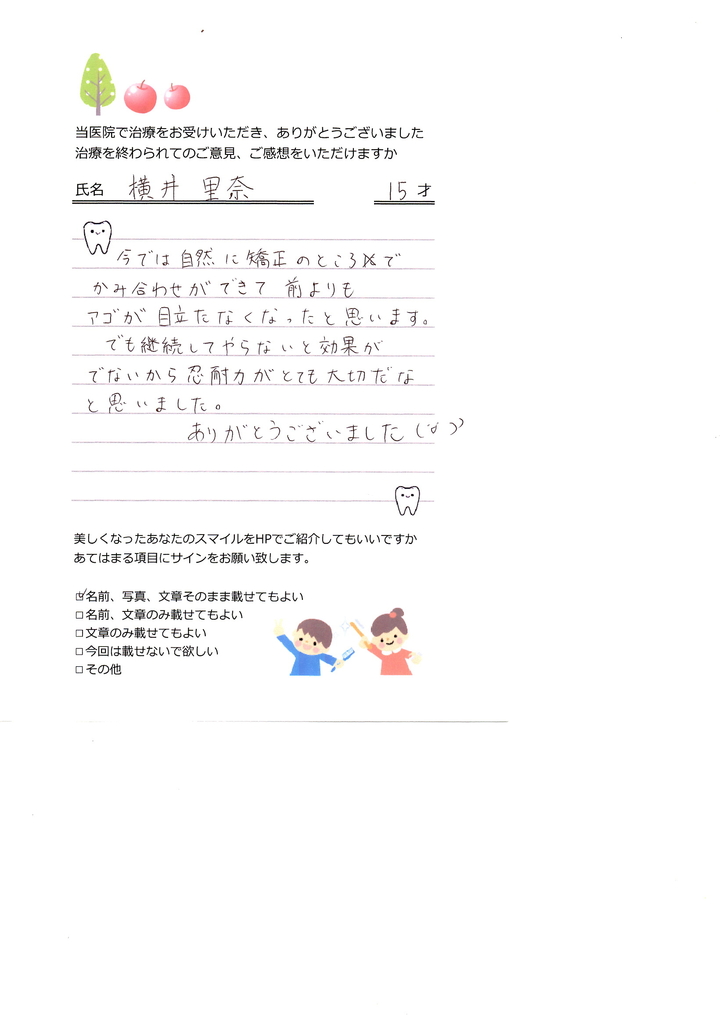 当医院で治療をお受けいただき、ありがとうございました
治療を終わられてのご意見、ご感想をいただけますか
氏名 横井 里奈 15 才
今では自然に矯正のところで
かみ合わせができて 前よりも
アゴが目立たなくなったと思います。
でも継続してやらないと効果が
でないから忍耐力がとても大切だな
と思いました。
ありがとうございました
美しくなったあなたのスマイルをHPでご紹介してもいいですか
あてはまる項目にサインをお願い致します。
☑名前、写真、文章そのまま載せてもよい
□名前、文章のみ載せてもよい
□文章のみ載せてもよい
□今回は載せないで欲しい
□その他